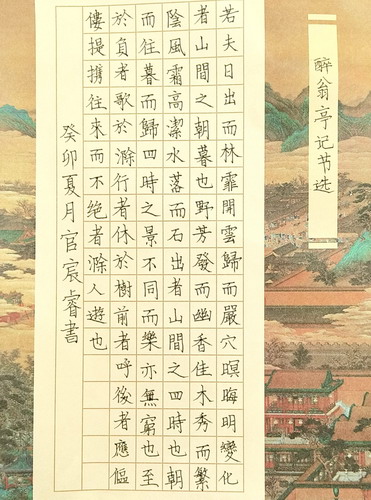 醉翁亭记节选
若夫日出而林霏開雲歸而嚴穴暝晦明變化
者山間之朝暮也野芳發而幽香佳木秀而繁
陰風霜高潔水落而石出者山間之四時也朝
而往暮而歸四時之景不同而樂亦無窮也至
於負者歌於滁行者休於樹前者呼後者應傴
僂提攜往來而不絕者滁人遊也
癸卯夏月官宸睿書